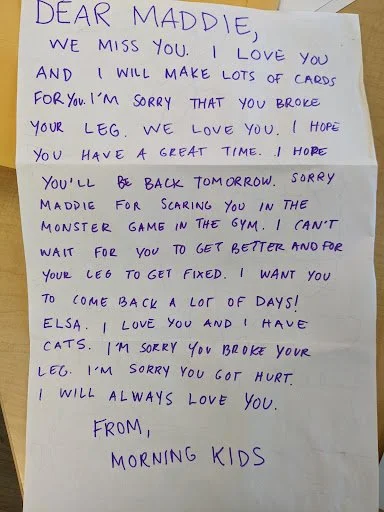 DEAR MADDIE,
WE MISS YOU. I LOVE YOU
AND I WILL MAKE LOTS OF CARDS
FOR YOU. I'M SORRY THAT YOU BROKE
YOUR LEG. WE LOVE YOU. I HOPE
YOU HAVE A GREAT TIME. I HOPE
YOU'LL BE BACK TOMORROW. SORRY
MADDIE FOR SCARING YOU IN THE
MONSTER GAME IN THE GYM. I CAN'T
WAIT FOR YOU TO GET BETTER AND FOR
YOUR LEG TO GET FIXED. I WANT YOU
TO COME BACK A LOT OF DAYS!
ELSA. I LOVE YOU AND I HAVE
CATS. I'M SORRY YOU BROKE YOUR
LEG. I'M SORRY YOU GOT HURT.
I WILL ALWAYS LOVE YOU.
FROM,
MORNING KIDS